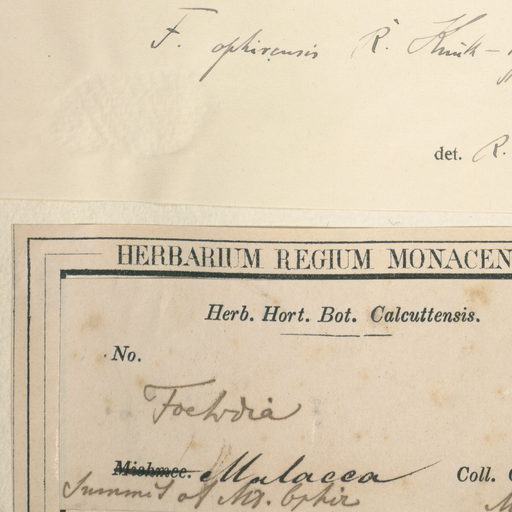 F. ophirensis R.
det. R.
HERBARIUM REGIUM MONACEN
Herb. Hort. Bot. Calcuttensis.
No.
Mishmee. Malacca Coll.
Summit of Mt. Ophir